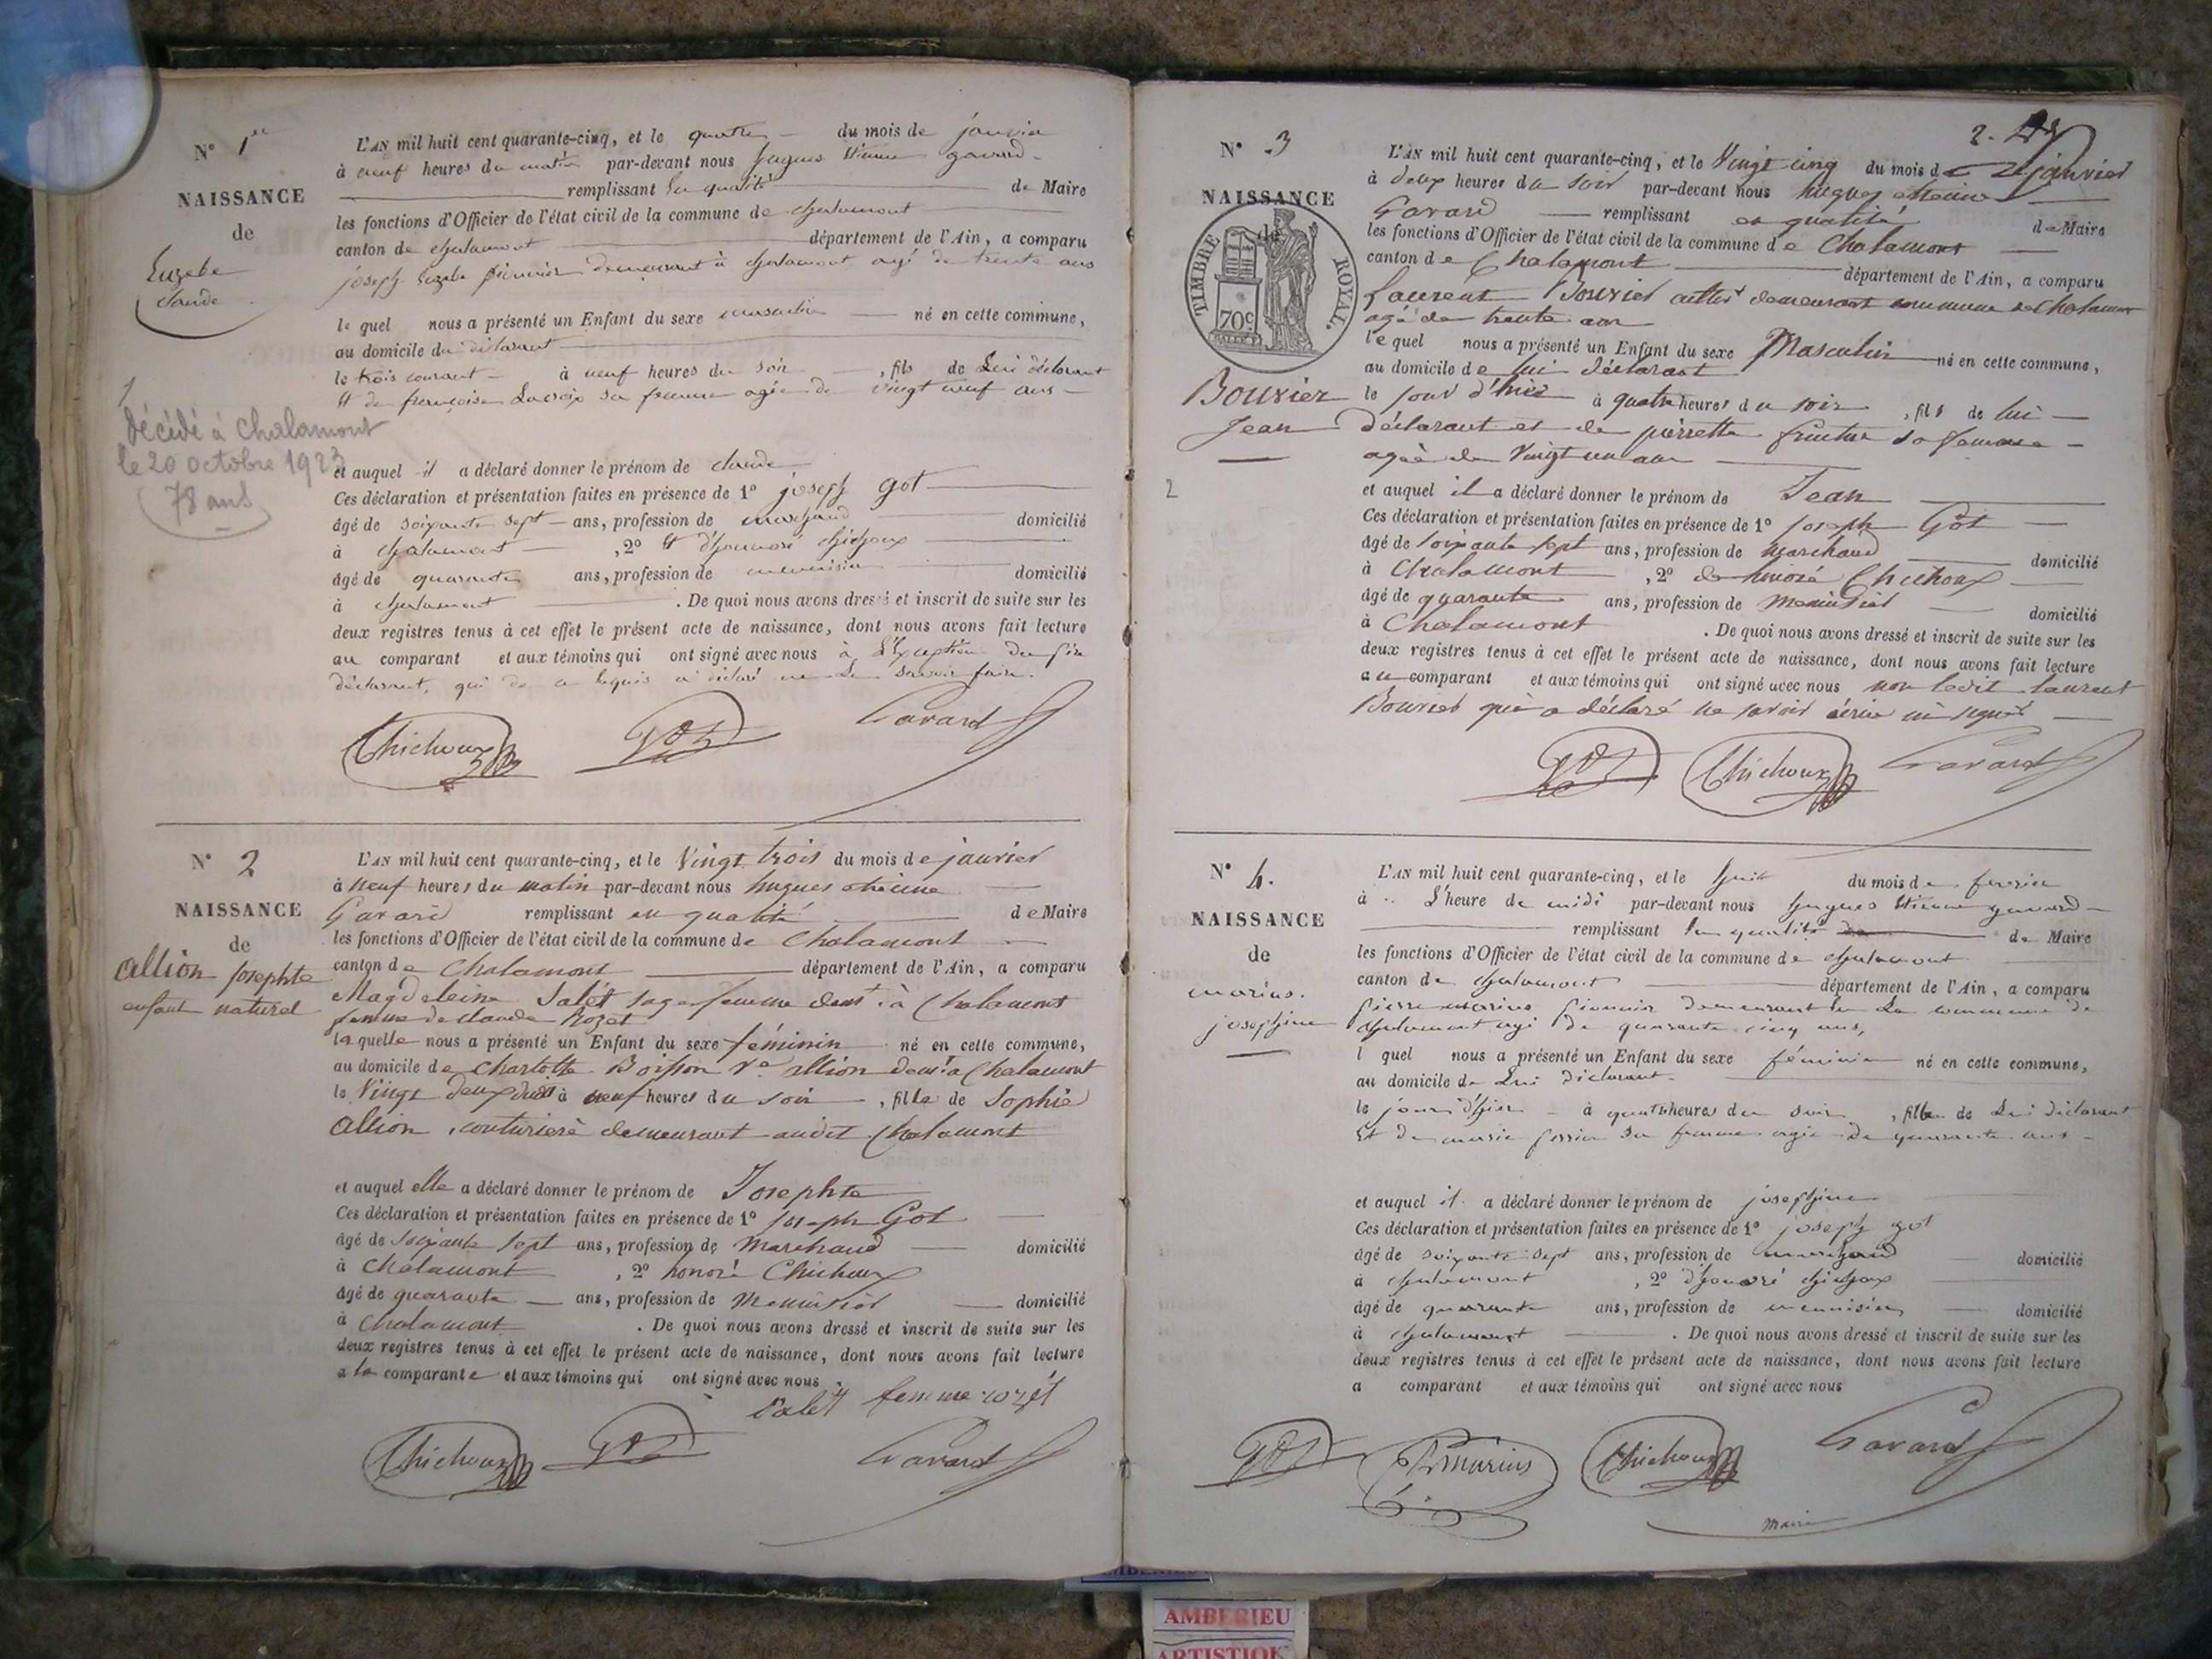 N° 1er
NAISSANCE
de
Euzebe
Claude
1
Décédé à Chalamont
le 20 octobre 1923
78 ans
L'AN mil huit cent quarante-cinq, et le quatre du mois de janvier
à neuf heures du matin par-devant nous hugues Etienne gavard
remplissant En qualité de Maire
les fonctions d'Officier de l'état civil de la commune de chalamont
canton de chalamont département de l'Ain, a comparu
joseph Euzebe pionnier demeurant à chalamont agé de trente ans
le quel nous a présenté un Enfant du sexe masculin né en cette commune,
au domicile du déclarant
le trois courant à neuf heures du soir, fils de Lui déclarant
Et de françoise Lacroix sa femme agée de vingt neuf ans
et auquel il a déclaré donner le prénom de claude
Ces déclaration et présentation faites en présence de 1° joseph got
âgé de soixante sept ans, profession de marchand domicilié
à chalamont, 2° Et d'honnoré chichoux
âgé de quarante ans, profession de menuisier domicilié
à chalamont. De quoi nous avons dressé et inscrit de suite sur les
deux registres tenus à cet effet le présent acte de naissance, dont nous avons fait lecture
au comparant et aux témoins qui ont signé avec nous à L'Exception du
déclarant, qui de ce Requis a déclaré ne Le Savoir faire.
Chichoux Got Gavard
N° 2
NAISSANCE
de
allion Josephte
enfant naturel
L'AN mil huit cent quarante-cinq, et le Vingt trois du mois de janvier
à neuf heures du matin par-devant nous hugues etienne
Gavard remplissant en qualité de Maire
les fonctions d'Officier de l'état civil de la commune de Chalamont
canton de Chalamont département de l'Ain, a comparu
Magdeleine Salét sage femme demt à Chalamont
femme de claude Rozet
la quelle nous a présenté un Enfant du sexe féminin né en cette commune,
au domicile de charlotte Boisson Ve allion demt à Chalamont
le Vingt deux dudit à neuf heures du soir, fille de Sophie
Allion, couturière demeurant audit Chalamont
et auquel elle a déclaré donner le prénom de Josephte
Ces déclaration et présentation faites en présence de 1° joseph Got
âgé de soixante sept ans, profession de Marchand domicilié
à Chalamont, 2° honoré Chichoux
âgé de quarante ans, profession de Menuisier domicilié
à Chalamont. De quoi nous avons dressé et inscrit de suite sur les
deux registres tenus à cet effet le présent acte de naissance, dont nous avons fait lecture
a la comparante et aux témoins qui ont signé avec nous
Salétt femme rozét
Chichoux Got Gavard
2.
N° 3
NAISSANCE
de
TIMBRE ROYAL.
70c
Bouvier
Jean
2
L'AN mil huit cent quarante-cinq, et le Vingt cinq du mois de janvier
à deux heures du soir par-devant nous hugues etienne
Gavard remplissant en qualité de Maire
les fonctions d'Officier de l'état civil de la commune de Chalamont
canton de Chalamont département de l'Ain, a comparu
Laurent Bouvier cultivr demeurant commune de Chalamont
agé de trente ans
le quel nous a présenté un Enfant du sexe Masculin né en cette commune,
au domicile de lui déclarant
le jour d'hier à quatre heures du soir, fils de lui
déclarant et de pierrette sa femme
agée de Vingt un ans
et auquel il a déclaré donner le prénom de Jean
Ces déclaration et présentation faites en présence de 1° Joseph Got
âgé de soixante sept ans, profession de Marchand domicilié
à Chalamont, 2° de honoré Chichoux
âgé de quarante ans, profession de Menuisier domicilié
à Chalamont. De quoi nous avons dressé et inscrit de suite sur les
deux registres tenus à cet effet le présent acte de naissance, dont nous avons fait lecture
au comparant et aux témoins qui ont signé avec nous non ledit laurent
Bouvier qui a déclaré ne savoir écrire ni signer
Got Chichoux Gavard
N° 4.
NAISSANCE
de
marius.
josephine
L'AN mil huit cent quarante-cinq, et le huit du mois de fevrier
à L'heure de midi par-devant nous hugues Etienne gavard
remplissant En qualité de Maire
les fonctions d'Officier de l'état civil de la commune de chalamont
canton de chalamont département de l'Ain, a comparu
pierre marius pionnier demeurant en La commune de
chalamont agé de quarante cinq ans,
l quel nous a présenté un Enfant du sexe féminin né en cette commune,
au domicile de Lui déclarant
le jour d'hier à quatre heures du soir, fille de Lui déclarant
Et de marie perrier sa femme agée de quarante ans
et auquel il a déclaré donner le prénom de josephine
Ces déclaration et présentation faites en présence de 1° joseph got
âgé de soixante sept ans, profession de marchand domicilié
à chalamont, 2° d'honoré chichoux
âgé de quarante ans, profession de menuisier domicilié
à chalamont. De quoi nous avons dressé et inscrit de suite sur les
deux registres tenus à cet effet le présent acte de naissance, dont nous avons fait lecture
a comparant et aux témoins qui ont signé avec nous
Got Pmurius Chichoux Gavard
Maire
AMBERIEU
ARTISTIQ